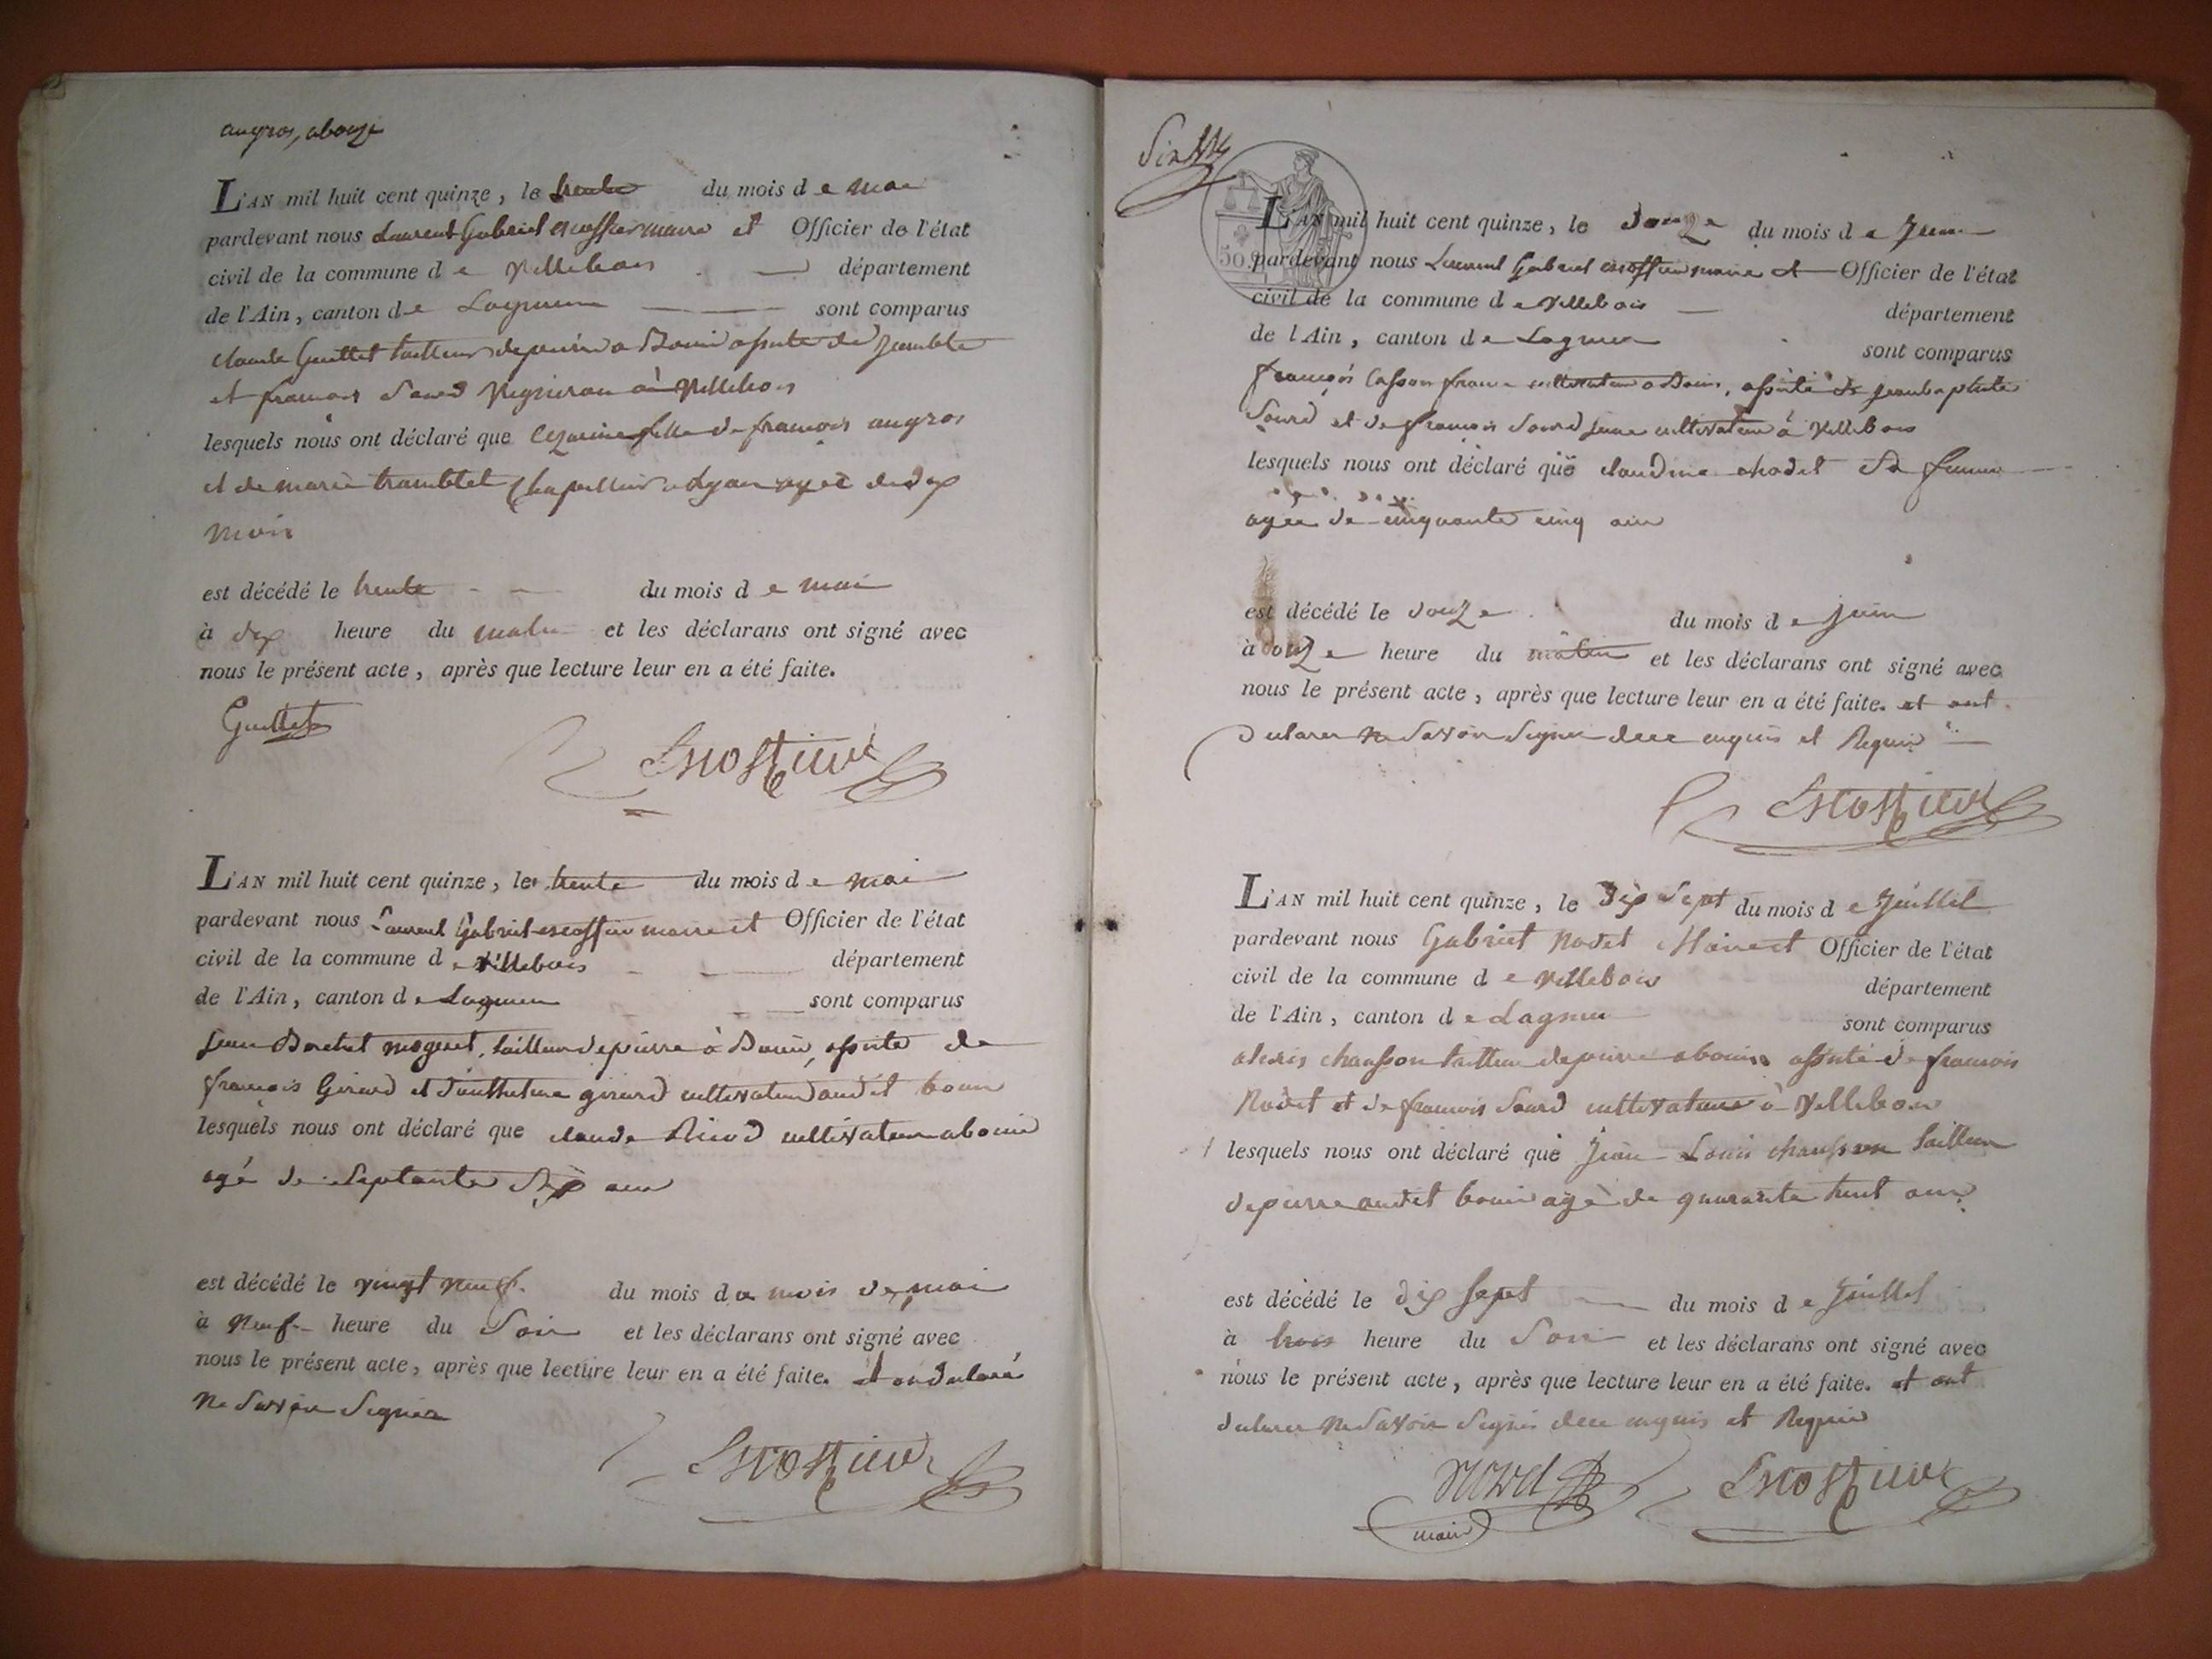 angros, abouis
L'AN mil huit cent quinze, le trente du mois de mai
pardevant nous Laurent Gabriel escoffier maire et Officier de l'état
civil de la commune de Villebois département
de l'Ain, canton de Lagnieu sont comparus
claude Guillet tailleur depierre a Bouis assisté de
et francois Sourd Vigneron à Villebois
lesquels nous ont déclaré que fille de francois angros
et de marie tramblet a Lyon agée de dix
mois
est décédé le trente du mois de mai
à dix heure du matin et les déclarans ont signé avec
nous le présent acte, après que lecture leur en a été faite.
Guillet
Escoffier
L'AN mil huit cent quinze, le trente du mois de mai
pardevant nous Laurent Gabriel escoffier maire et Officier de l'état
civil de la commune de Villebois département
de l'Ain, canton de Lagnieu sont comparus
Jean tailleur depierre à Bouis, assisté de
francois Girard et girard cultivateurs audit bouis
lesquels nous ont déclaré que claude cultivateur abouis
agé de Septante ans
est décédé le vingt neuf du mois de mois de mai
à Neuf heure du Soir et les déclarans ont signé avec
nous le présent acte, après que lecture leur en a été faite. et ondeclaré
Ne Savoir Signer
Escoffier
Six
50
L'AN mil huit cent quinze, le douze du mois de Juin
pardevant nous Laurent Gabriel escoffier maire et Officier de l'état
civil de la commune de Villebois département
de l'Ain, canton de Lagnieu sont comparus
françois cultivateur a Bouis, assisté de jeanbaptiste
Sourd et de françois Sourd cultivateur à Villebois
lesquels nous ont déclaré que claudine Sa femme
agée de cinquante cinq ans
est décédé le douze du mois de juin
à onze heure du matin et les déclarans ont signé avec
nous le présent acte, après que lecture leur en a été faite. et ont
declarer ne Savoir Signer dece enquis et Requis
Escoffier
L'AN mil huit cent quinze, le Dix Sept du mois de Juillet
pardevant nous Gabriel Nodet Maire et Officier de l'état
civil de la commune de Villebois département
de l'Ain, canton de Lagnieu sont comparus
alexis chausson tailleur depierre abouis assisté de francois
Nodet et de francois Sourd cultivateurs à Villebois
lesquels nous ont déclaré que Jean Louis chausson tailleur
depierre audit bouis agé de quarante huit ans
est décédé le dix sept du mois de Juillet
à trois heure du Soir et les déclarans ont signé avec
nous le présent acte, après que lecture leur en a été faite. et ont
declarer Ne Savoir Signer dece enquis et Requis
Nodet Escoffier
maire